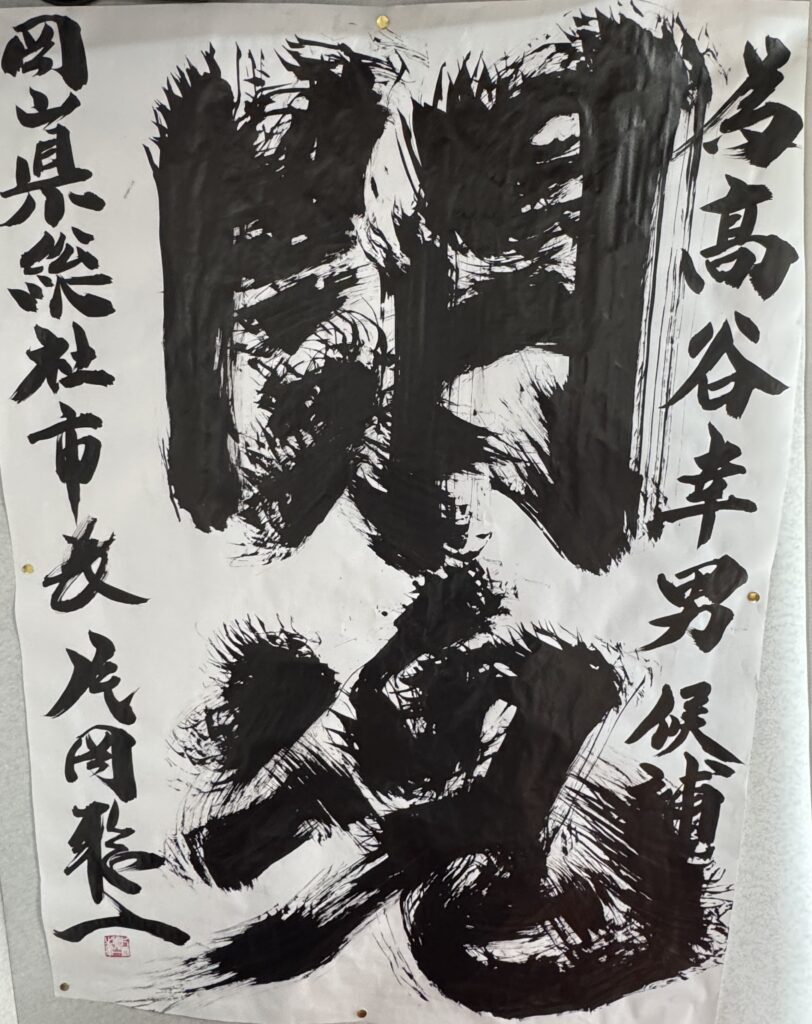 為高谷幸男候補
闘魂
岡山県総社市長 片岡聡一